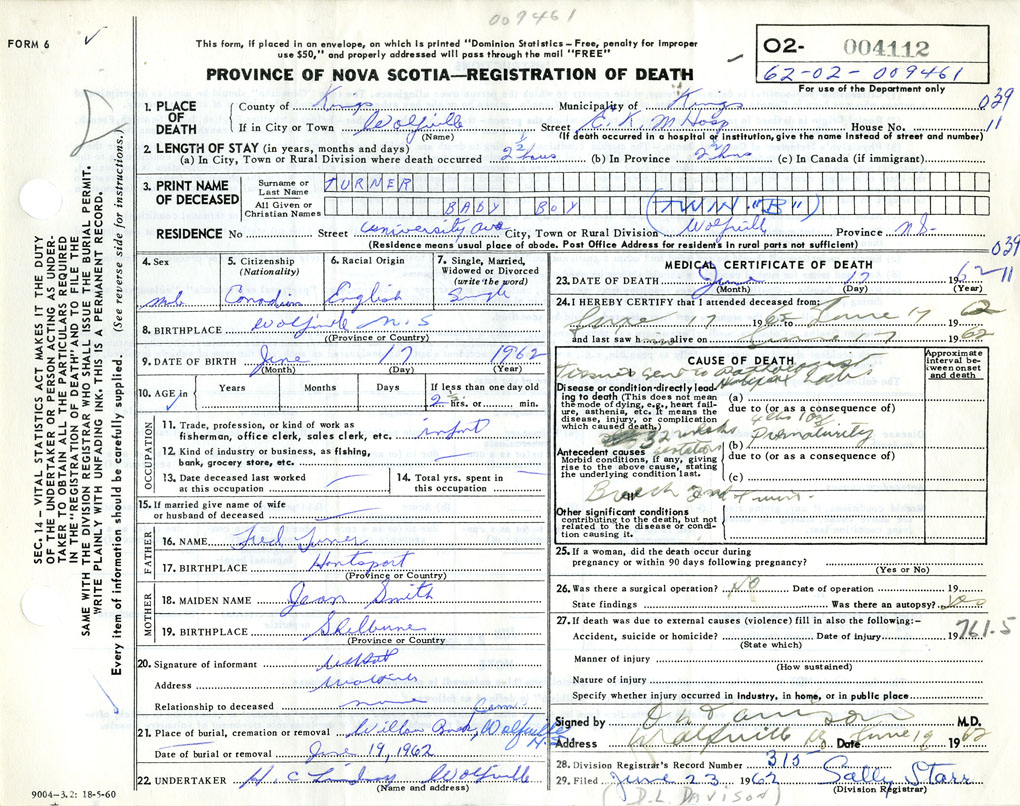 009461
FORM 6
This form, if placed in an envelope, on which is printed "Dominion Statistics – Free, penalty for improper
use $50," and properly addressed will pass through the mail "FREE"
PROVINCE OF NOVA SCOTIA—REGISTRATION OF DEATH
O2- 004112
62-02-009461
For use of the Department only
SEC. 14 – VITAL STATISTICS ACT MAKES IT THE DUTY
OF THE UNDERTAKER OR PERSON ACTING AS UNDER-
TAKER TO OBTAIN ALL THE PARTICULARS REQUIRED
IN THE "REGISTRATION OF DEATH" AND TO FILE THE
SAME WITH THE DIVISION REGISTRAR WHO SHALL ISSUE THE BURIAL PERMIT.
WRITE PLAINLY WITH UNFADING INK. THIS IS A PERMANENT RECORD.
Every item of information should be carefully supplied. (See reverse side for instructions.)
1. PLACE OF DEATH County of Kings Municipality of Kings 039
If in City or Town Wolfville (Name) Street E. K. M Hosp House No. 11
(If death occurred in a hospital or institution, give the name instead of street and number)
2. LENGTH OF STAY (in years, months and days)
(a) In City, Town or Rural Division where death occurred 2½ hrs (b) In Province 2½ hrs (c) In Canada (if immigrant)
3. PRINT NAME OF DECEASED Surname or Last Name TURNER
All Given or Christian Names BABY BOY (TWIN "B")
RESIDENCE No Street University Ave City, Town or Rural Division Wolfville Province N.S.
(Residence means usual place of abode. Post Office Address for residents in rural parts not sufficient)
039
11
4. Sex 5. Citizenship (Nationality) 6. Racial Origin 7. Single, Married, Widowed or Divorced (write the word)
Canadian English Single
8. BIRTHPLACE Wolfville N.S
(Province or Country)
9. DATE OF BIRTH June 17 1962
(Month) (Day) (Year)
10. AGE in Years Months Days If less than one day old
2½ hrs. or min.
OCCUPATION
11. Trade, profession, or kind of work as
fisherman, office clerk, sales clerk, etc. infant
12. Kind of industry or business, as fishing,
bank, grocery store, etc.
13. Date deceased last worked at this occupation 14. Total yrs. spent in this occupation
15. If married give name of wife
or husband of deceased
FATHER
16. NAME Fred Turner
17. BIRTHPLACE Hantsport
(Province or Country)
MOTHER
18. MAIDEN NAME Jean Smith
19. BIRTHPLACE Shelburne
(Province or Country)
20. Signature of informant
Address Wolfville
Relationship to deceased none
21. Place of burial, cremation or removal Willow Bank Cem, Wolfville N.S
Date of burial or removal June 19, 1962
22. UNDERTAKER H. C. Lindsay Wolfville
(Name and address)
9004-3.2: 18-5-60
MEDICAL CERTIFICATE OF DEATH
23. DATE OF DEATH June 17 1962
(Month) (Day) (Year)
24. I HEREBY CERTIFY that I attended deceased from:
June 17 1962 to June 17 1962
and last saw him alive on June 17 1962
CAUSE OF DEATH
Approximate interval between onset and death
Tissues sent to Pathologist
Disease or condition directly leading to death (This does not mean the mode of dying, e.g., heart failure, asthenia, etc. It means the disease, injury, or complication which caused death.)
(a)
due to (or as a consequence of)
32 weeks
Prematurity
Antecedent causes
Morbid conditions, if any, giving rise to the above cause, stating the underlying condition last.
(b)
due to (or as a consequence of)
(c)
Breech 2nd twin.
Other significant conditions
contributing to the death, but not related to the disease or condition causing it.
25. If a woman, did the death occur during
pregnancy or within 90 days following pregnancy?
(Yes or No)
26. Was there a surgical operation? No Date of operation 19
State findings Was there an autopsy?
27. If death was due to external causes (violence) fill in also the following:–
Accident, suicide or homicide? Date of injury 19 761.5
(State which)
Manner of injury
(How sustained)
Nature of injury
Specify whether injury occurred in industry, in home, or in public place
Signed by D L Davison M.D.
Address Wolfville NS Date June 19 1962
28. Division Registrar's Record Number 315
29. Filed June 23 1962 Sally Starr
(Division Registrar)
(D.L. DAVISON)